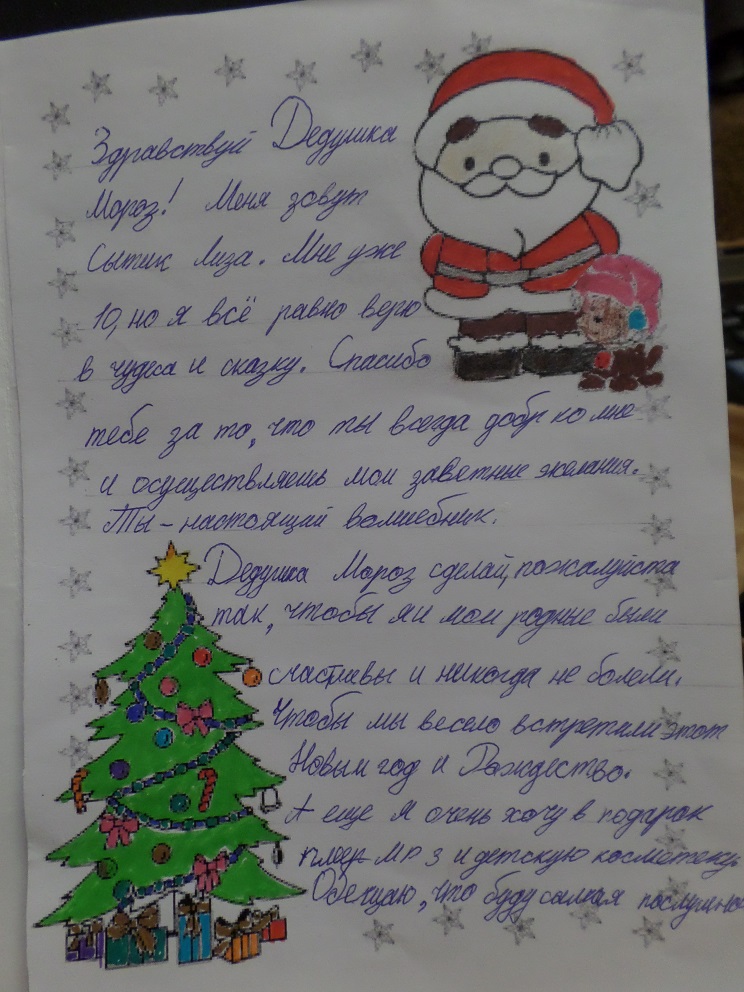 Здравствуй Дедушка
Мороз! Меня зовут
Сытик Лиза. Мне уже
10, но я всё равно верю
в чудеса и сказку. Спасибо
тебе за то, что ты всегда добр ко мне
и осуществляешь мои заветные желания.
Ты - настоящий волшебник.
Дедушка Мороз сделай, пожалуйста
так, чтобы я и мои родные были
счастливы и никогда не болели.
Чтобы мы весело встретили этот
Новый год и Рождество.
А еще я очень хочу в подарок
плеер MP 3 и детскую
Обещаю, что буду самая